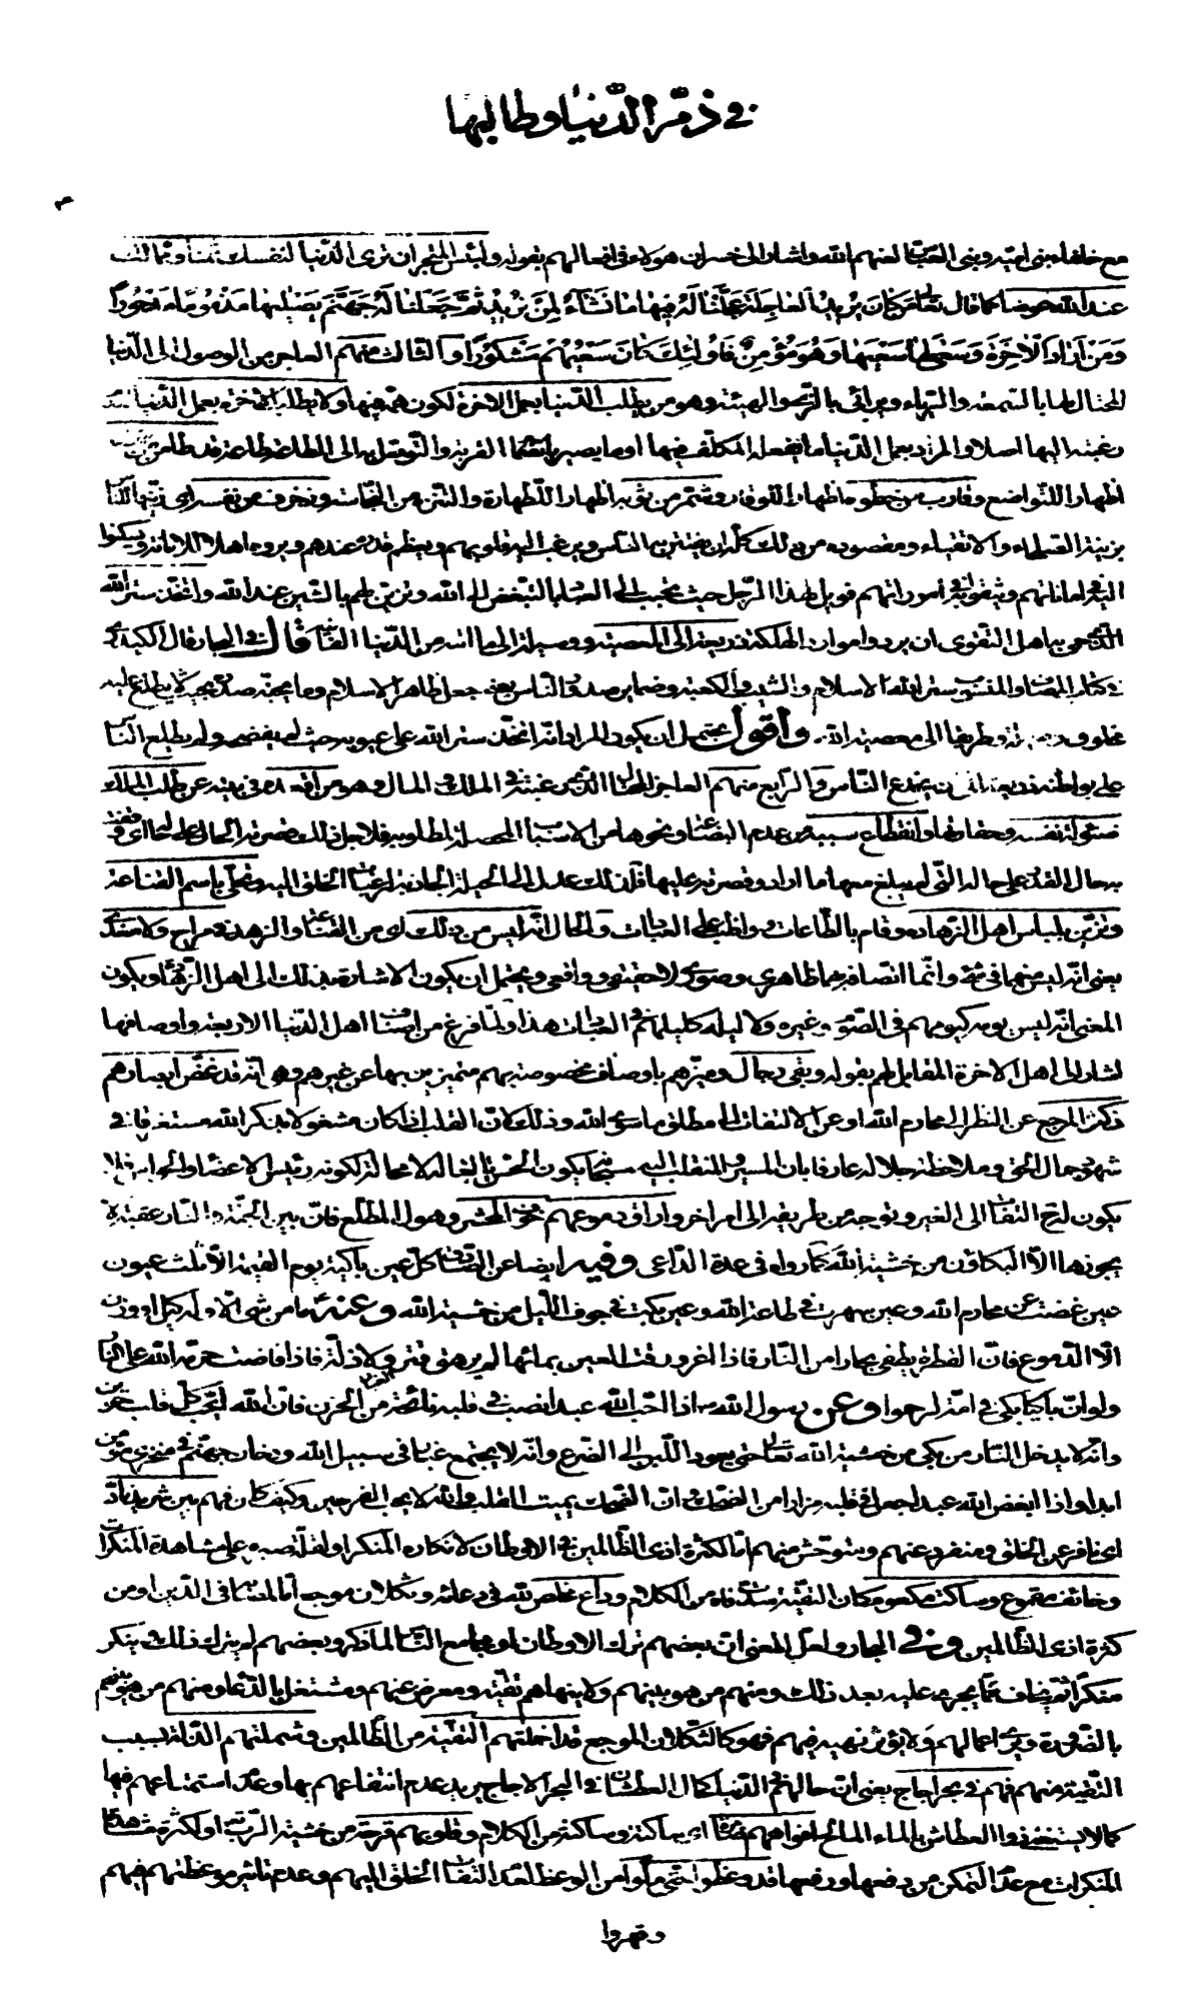 في ذمّ الدّنيا وطالبها
مع خلفاء بني اميّة وبني العبّاس لعنهم الله واشار الى خسران هؤلاء في افعالهم بقوله ولبئس المتجر ان ترى الدّنيا لنفسك ثمنا وممّا لك
عند الله عوضا كما قال تعالى من كان يريد العاجلة عجّلنا له فيها ما نشاء لمن نريد ثمّ جعلنا له جهنّم يصليها مذموما مدحورا
ومن اراد الآخرة وسعى لها سعيها وهو مؤمن فاولئك كان سعيهم مشكورا والثالث منهم العاجز من الوصول الى الدّنيا
المحتال لها بالسّمعة والرّياء ويرائى بالزّىّ والهيئة وهو من يطلب الدّنيا بعمل الآخرة لكون همّه فيها ولا يطلب الآخرة بعمل الدّنيا لعدم
رغبته اليها اصلا والمراد بعمل الدّنيا ما يفعله المكلّف فيها او ما يصير بانضمام القربة والتّوصّل به الى الطاعة طاعة قد طامن
اظهارا للتّواضع وقارب من خطوه اظهارا للوقار وشمّر من ثوبه اظهارا للطهارة والتنزّه من النجاسة وزخرف من نفسه اى زيّنها للنّاس
بزينة الصلحاء والاتقياء ومقصوده من ذلك كلّه ان يفتتن به النّاس ويرغب اليه قلوبهم ويعظم قدره عندهم ويروه اهلا للامانة ويسكنوا
اليه في اماناتهم ويثقوا به في امور اتهم فويل لهذا الرّجل حيث تحبّب الى العباد بالتبغّض الى الله وتزيّن لهم بالشين عند الله واتّخذ ستر الله
الّذي حمى به اهل التقوى ان يردوا موارد الهلكة ذريعة الى المعصية ووسيلة الى ما امّه من الدّنيا الفانية قال في البحار قال الكيدرى
في كتاب المضاف والمنسوب ستر الله الاسلام والشيب والكعبة وضماير صدور النّاس يعني جعل ظاهر الاسلام وما يجنّه صدره بحيث لا يطّلع عليه
مخلوق وطريقا الى معصية الله. واقول يحتمل ان يكون المراد انّه اتّخذ ستر الله على عيوبه حيث لم يفضحه ولم يطّلع النّاس
على بواطنه ذريعة الى ان يخدع النّاس والرّابع منهم العاجز المحتال الّذي رغبته في الملك والمال وهو من اقعده في بيته عن طلب الملك
ضئولة نفسه وحقارتها وانقطاع سببه من عدم البضاعة ونحوها من الاسباب المحصلة لمطلوبه فلاجل ذلك قصرته الحال على حاله اى وقفت
به حال القدر على حاله الّتي لم يبلغ معها ما اراد وقصرته عليها فلذلك عدل الى الحيلة الجاذبة لرغبات الخلق اليه وتحلّى باسم القناعة
وتزيّن بلباس اهل الزّهادة وقام بالطّاعات وواظب على العبادات والحال انّه ليس من ذلك اى من القناعة والزهد في مراح ولا مغدى
يعني انّه ليس منهما في شيء وانّما اتّصافه بهما ظاهري وصوري لا حقيقي وواقعي ويحتمل ان يكون الاشارة بذلك الى اهل الزّهادة ويكون
المعنى انّه ليس يومه كيومهم في الصّوم وغيره ولا ليله كليلهم في العبادات هذا ولمّا فرغ من اصناف اهل الدّنيا الاربعة واوصافها
اشار الى اهل الآخرة المقابل لهم بقوله وبقى رجال وميّزهم باوصاف مخصوصة بهم متميّزين بها عن غيرهم وهو انّه قد غضّ ابصارهم
ذكر المرجع عن النظر الى محارم الله او عن الالتفات الى مطلق ما سوى الله وذلك لانّ القلب اذا كان مشغولا بذكر الله مستغرقا في
شهود جمال الحق وملاحظة جلاله عارفا بان المسير والمنقلب اليه سبحانه يكون الحسّ تابعا له لا محالة لكونه رئيس الاعضاء والحواسّ فلا
يكون له التفات الى الغير وتوجه من طريقه الى امر اخر واراق دموعهم خوف المحشر وهول المطّلع فانّ بين الجنّة والنار عقبة لا
يجوزها الّا البكّاؤن من خشية الله كما رواه في عدة الدّاعى وفيه ايضا عن الصّادق كلّ عين باكية يوم القيمة الّا ثلث عيون
عين غضّت عن محارم الله وعين سهرت في طاعة الله وعين بكت في جوف اللّيل من خشية الله وعنه ما من شيء الّا وله كيل او وزن
الّا الدّموع فانّ القطرة يطفى بحارا من النّار فاذا اغرورقت العين بمائها لم يرهق قتر ولا ذلّة فاذا فاضت حرّمه الله على النّار
ولو انّ باكيا بكى في امّة لرحموا وعن رسول الله ص اذا احبّ الله عبدا نصب في قلبه نائحة من الحزن فانّ الله يحبّ كلّ قلب حزين
وانّه لا يدخل النّار من بكى من خشية الله تعالى حتّى يعود اللّبن الى الضرع وانّه لا يجتمع غبار في سبيل الله ودخان جهنّم في منخري مؤمن
ابدا واذا ابغض الله عبدا جعل في قلبه مزمارا من الضحك وانّ الضحك يميت القلب والله لا يحبّ الفرحين وكيف كان فهم بين شريد نادّ
اى نافر عن الخلق ومنفرد عنهم ومتوحّش منهم امّا لكثرة اذى الظّالمين في الاوطان لانكاره المنكر او لقلّة صبره على مشاهدة المنكرات
وخائف مقموع وساكت مكعوم كان التقيّة سدّت فاه من الكلام وداع مخلص لله في دعائه وثكلان موجع امّا لمصابه في الدّين او من
كثرة اذى الظّالمين وفي البحار ولعلّ المعنى انّ بعضهم ترك الاوطان او مجامع النّاس لما ذكر وبعضهم لم يترك ذلك وينكر
منكرا ثمّ يخاف ممّا يجرى عليه بعد ذلك ومنهم من هو بينهم ولا ينهاهم تقيّة ومعرض عنهم ومشتغل بالدّعاء ومنهم من هو بينهم
بالضّرورة ويرى اعمالهم ولا يؤثر نهيه فيهم فهو كالثّكلان الموجع قد اخملتهم التقيّة من الظّالمين وشملتهم الذّلّة بسبب
التّقيّة منهم فهم في بحر اجاج يعني انّ حالهم في الدّنيا كحال العطشان في البحر الاجاج يريد عدم انتفاعهم بها وعدم استمتاعهم فيها
كما لا يستغنى ذوا العطاش بالماء المالح افواههم ضامزة اى ساكنة وساكتة من الكلام وقلوبهم قرحة من خشية الرّبّ او لكثرة مشاهدة
المنكرات مع عدم التمكّن من دفعها ورفعها قد وعظوا حتّى ملّوا من الوعظ لعدم التفات الخلق اليهم وعدم تاثير موعظتهم فيهم
وقهروا